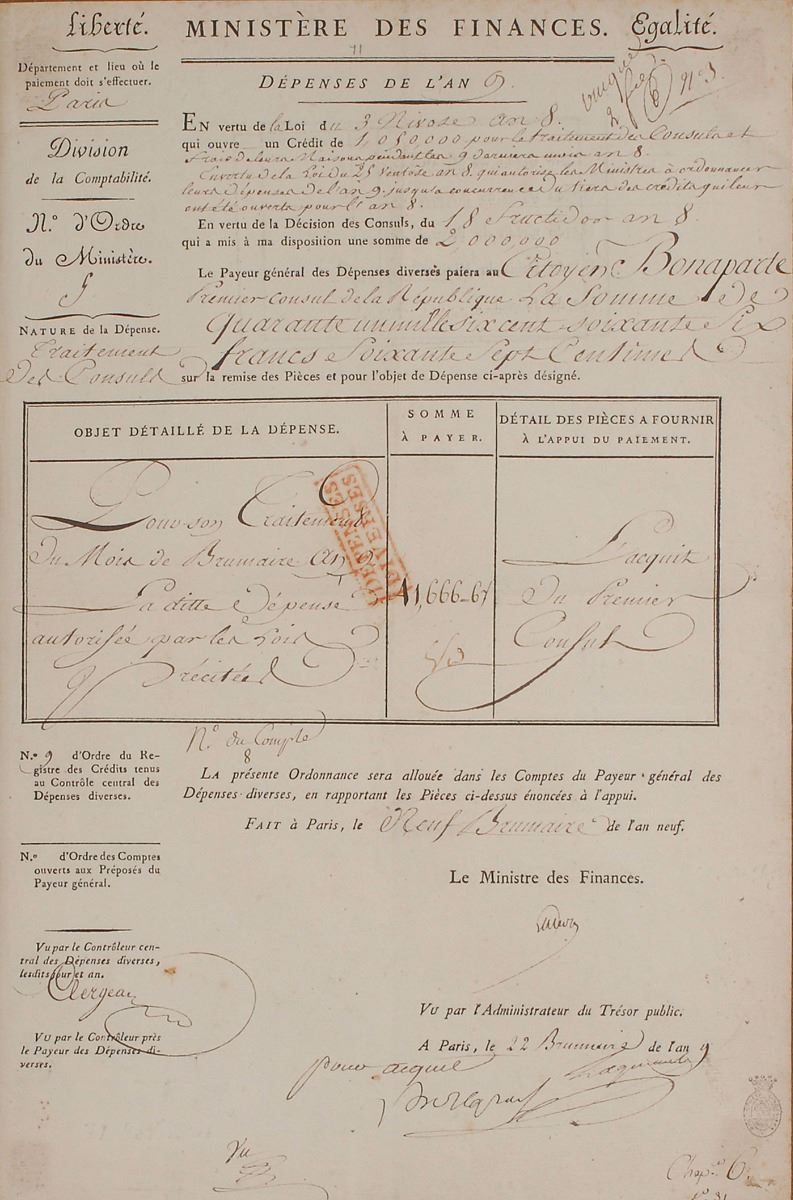 Liberté. MINISTÈRE DES FINANCES. Egalité.
11
Département et lieu où le
paiement doit s'effectuer.
Paris
Division
de la Comptabilité.
N.º d'Ordre
du Ministère.
5
NATURE de la Dépense.
Traitement
Des Consuls
DÉPENSES DE L'AN 9.
nº 3
EN vertu de la Loi du 3 Nivose an 8.
qui ouvre un Crédit de 1,050,000 pour le traitement des Consuls et
frais de leurs Maisons pendant les 9 derniers mois an 8.
En vertu de la Loi du 25 Ventose an 8. qui autorise les Ministres à ordonnancer
leurs dépenses de l'an 9. jusqu'a concurrence du tiers des crédits qui leur
ont été ouverts pour l'an 8.
En vertu de la Décision des Consuls, du 18 fructidor an 8.
qui a mis à ma disposition une somme de 2,000,000
Le Payeur général des Dépenses diverses paiera au Citoyen Bonaparte
Premier Consul de la République La Somme de
Quarante un mille six cent soixante six
francs soixante sept Centimes
sur la remise des Pièces et pour l'objet de Dépense ci-après désigné.
OBJET DÉTAILLÉ DE LA DÉPENSE.
SOMME
À PAYER.
DÉTAIL DES PIÈCES A FOURNIR
À L'APPUI DU PAIEMENT.
Pour son Traitement
du Mois de Brumaire An 9
La ditte Dépense
autorisée par les Lois
Précitées
DÉPENSES
DIVERSES
41,666-67
L'acquit
du Premier
Consul
N.º du Compte
8
N.º 9 d'Ordre du Re-
gistre des Crédits tenus
au Contrôle central des
Dépenses diverses.
LA présente Ordonnance sera allouée dans les Comptes du Payeur général des
Dépenses diverses, en rapportant les Pièces ci-dessus énoncées à l'appui.
FAIT à Paris, le Neuf Brumaire de l'an neuf.
N.º d'Ordre des Comptes
ouverts aux Préposés du
Payeur général.
Le Ministre des Finances.
Vu par le Contrôleur cen-
tral des Dépenses diverses,
lesdits jour et an.
Clergeau
VU par le Contrôleur près
le Payeur des Dépenses di-
verses.
VU par l'Administrateur du Trésor public.
A Paris, le 22 Brumaire de l'an 9
pour acquit
Vu
Chap. 6.